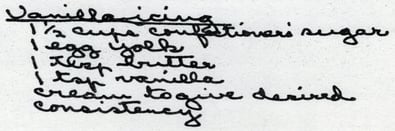 Vanilla icing
1 ½ cups confectioners sugar
1 egg yolk
1 tbsp butter
1 tsp vanilla
cream to give desired
consistency